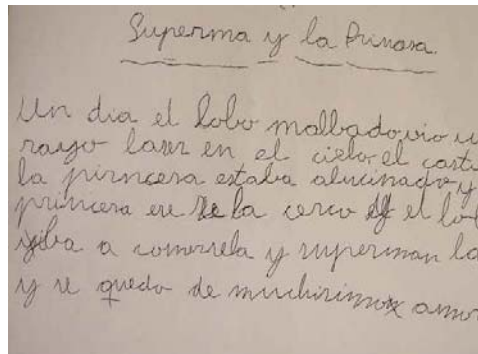 Superma y la Prinasa.
Un dia el lobo malbado vio u
rayo laser en el cielo el casti
la pirncesa estaba alucinado y
princesa ere la cerco el lob
yiba a comersela y superman la
y se quedo de muchisimox amor